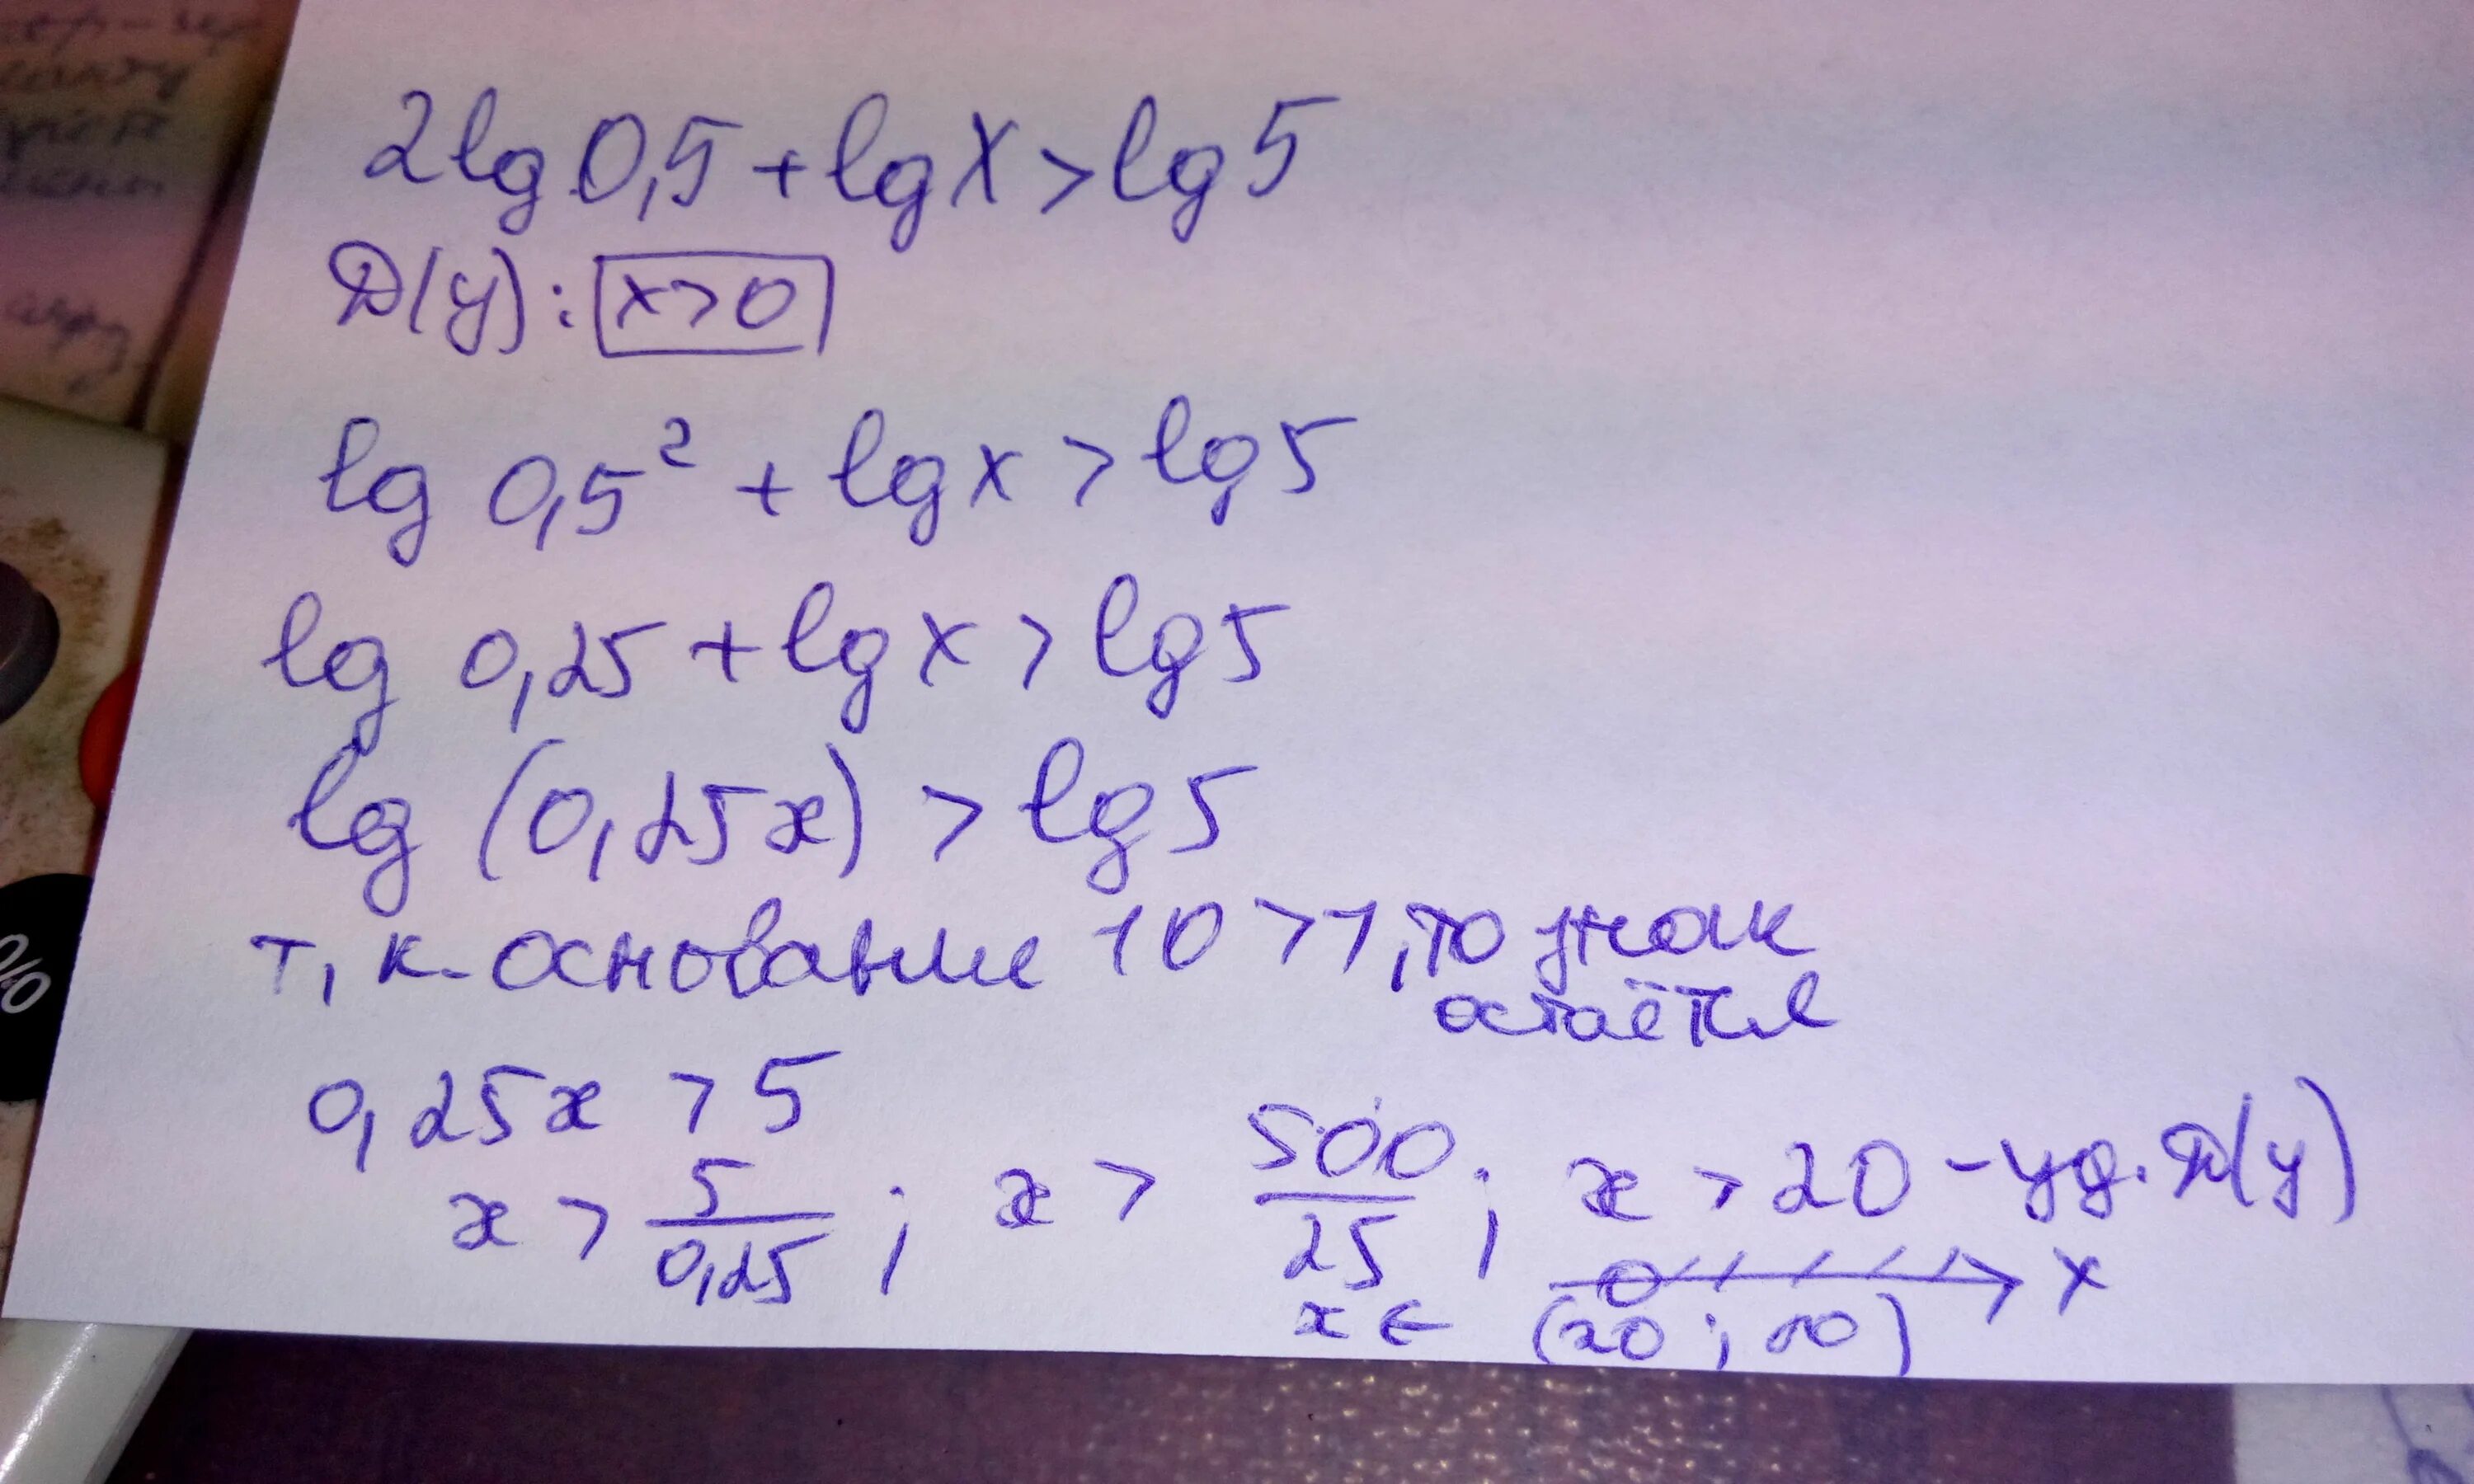 2lg 0,5 + lg x > lg 5
D(y): x>0
lg 0,5² + lg x > lg 5
lg 0,25 + lg x > lg 5
lg (0,25x) > lg 5
т, к. основание 10 > 1, то знак
остаётся
0,25x > 5
x > 5/0,25 ; x > 500/25 ; x > 20 - уд. D(y)
x
x ∈ (20 ; ∞)
%